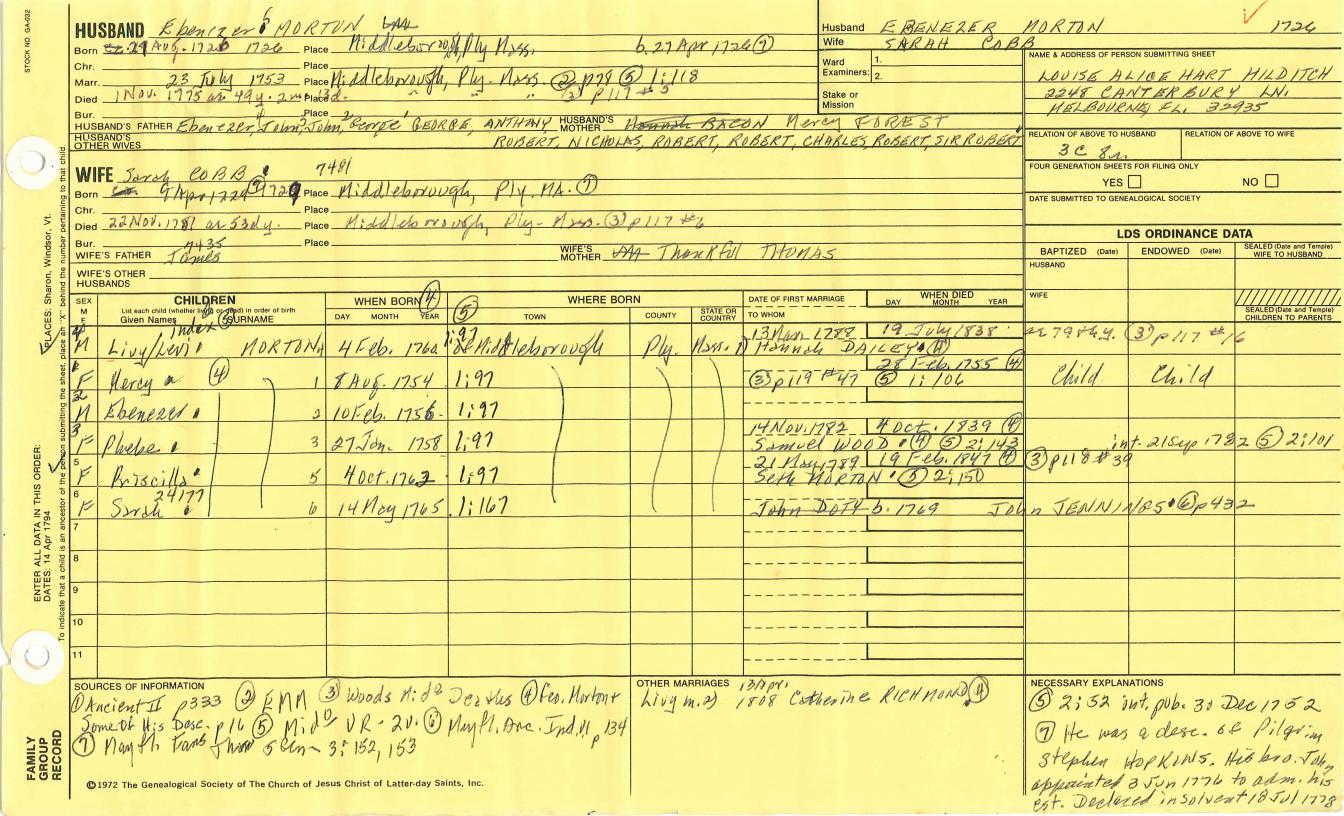 STOCK NO. GA-032
PLACES: Sharon, Windsor, Vt.
ENTER ALL DATA IN THIS ORDER:
DATES: 14 Apr 1794
To indicate that a child is an ancestor of the person submitting the sheet, place an "X" behind the number pertaining to that child.
FAMILY GROUP RECORD
HUSBAND Ebenezer 6 MORTON
Born 27 Aug. 1726 1726 Place Middleborough, Ply. Mass. b. 27 Apr 1726 (7)
Chr. Place
Marr. 23 July 1753 Place Middleborough, Ply. Mass. (2) p78 (5) 1:118
Died 1 Nov. 1775 ae 49y. 2m 13d. Place " " " (3) p117 #5
Bur. Place
HUSBAND'S FATHER Ebenezer, John, John, George GEORGE, ANTHONY, HUSBAND'S MOTHER Hannah BACON Mercy FOREST
HUSBAND'S OTHER WIVES ROBERT, NICHOLAS, ROBERT, ROBERT, CHARLES, ROBERT, SIR ROBERT
WIFE Sarah COBB 7481
Born 9 Apr 1729 (7) 1729 Place Middleborough, Ply. MA. (7)
Chr. Place
Died 22 Nov. 1781 ae 53dy. Place Middleborough, Ply. Mass. (3) p117 #6
Bur. Place
7435
WIFE'S FATHER James WIFE'S MOTHER Thankful THOMAS
WIFE'S OTHER HUSBANDS
Husband EBENEZER MORTON 1726
Wife SARAH COBB
Ward Examiners: 1. 2.
Stake or Mission
NAME & ADDRESS OF PERSON SUBMITTING SHEET
LOUISE ALICE HART HILDITCH
2248 CANTERBURY LN.
MELBOURNE, FL. 32935
RELATION OF ABOVE TO HUSBAND RELATION OF ABOVE TO WIFE
3C 8r.
FOUR GENERATION SHEETS FOR FILING ONLY
YES NO
DATE SUBMITTED TO GENEALOGICAL SOCIETY
LDS ORDINANCE DATA
BAPTIZED (Date) ENDOWED (Date) SEALED (Date and Temple) WIFE TO HUSBAND
HUSBAND
WIFE
SEALED (Date and Temple) CHILDREN TO PARENTS
SEX M F CHILDREN WHEN BORN (4) WHERE BORN DATE OF FIRST MARRIAGE WHEN DIED
List each child (whether living or dead) in order of birth
Given Names index (5) SURNAME DAY MONTH YEAR (5) TOWN COUNTY STATE OR COUNTRY TO WHOM DAY MONTH YEAR
4 M Livy/Levi MORTON 4 Feb. 1760 1:97 of Middleborough Ply. Mass. 13 Mar. 1788 Hannah DAILEY (4) 19 July 1838 ae 79thy. (3) p117 #16
1 F Mercy (4) 1 8 Aug. 1754 1:97 (3) p119 #47 28 Feb. 1755 (4) (5) 1:106 Child Child
2 M Ebenezer 2 10 Feb. 1756 1:97
3 F Phebe 3 27 Jan. 1758 1:97 14 Nov. 1782 Samuel WOOD (4) (5) 2:143 4 Oct. 1839 (4) int. 21 Sep 1782 (5) 2:101
5 F Priscilla 5 4 Oct. 1762 1:97 21 May 1789 Seth MORTON (5) 2:150 19 Feb. 1847 (4) (3) p118 #39
24177
6 F Sarah 6 14 May 1765 1:167 John DOTY b. 1769 John JENNINGS (6) p432
7
8
9
10
11
SOURCES OF INFORMATION
(1) Ancient II p333 (2) EMM (3) Woods Mid° Deaths (4) Geo. Morton &
Some of His Desc. p16 (5) Mid° VR - 2v. (6) Mayfl. Anc. Ind. II p134
(7) Mayfl. Fams Thru 5 Gen - 3:152, 153
OTHER MARRIAGES
Livy m. 2) 13 Apr. 1808 Catherine RICHMOND (4)
NECESSARY EXPLANATIONS
(5) 2:52 int. pub. 30 Dec 1752
(7) He was a desc. of Pilgrim
Stephen HOPKINS. His bro. John
appointed 3 Jun 1776 to adm. his
est. Declared insolvent 18 Jul 1778
©1972 The Genealogical Society of The Church of Jesus Christ of Latter-day Saints, Inc.